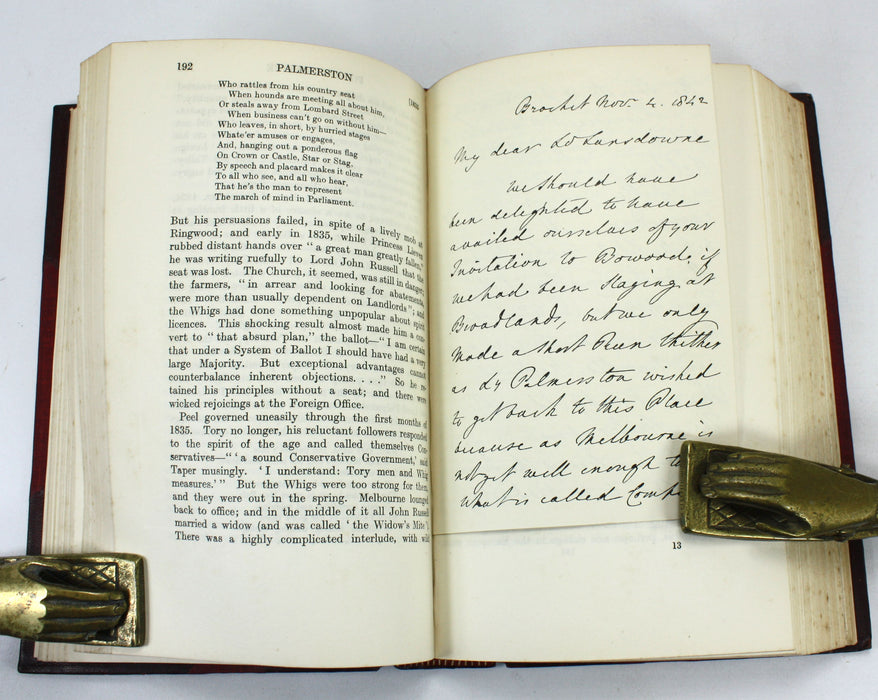 192 PALMERSTON
[1835
Who rattles from his country seat
When hounds are meeting all about him,
Or steals away from Lombard Street
When business can't go on without him—
Who leaves, in short, by hurried stages
Whate'er amuses or engages,
And, hanging out a ponderous flag
On Crown or Castle, Star or Stag,
By speech and placard makes it clear
To all who see, and all who hear,
That he's the man to represent
The march of mind in Parliament.
But his persuasions failed, in spite of a lively mob at
Ringwood; and early in 1835, while Princess Lieven
rubbed distant hands over “a great man greatly fallen,”
he was writing ruefully to Lord John Russell that the
seat was lost. The Church, it seemed, was still in danger;
the farmers, “in arrear and looking for abatements,
were more than usually dependent on Landlords”; and
the Whigs had done something unpopular about spirit
licences. This shocking result almost made him a con-
vert to “that absurd plan,” the ballot—“I am certain
that under a System of Ballot I should have had a very
large Majority. But exceptional advantages cannot
counterbalance inherent objections. . . .” So he re-
tained his principles without a seat; and there were
wicked rejoicings at the Foreign Office.
Peel governed uneasily through the first months of
1835. Tory no longer, his reluctant followers responded
to the spirit of the age and called themselves Con-
servatives—“‘a sound Conservative Government,’ said
Taper musingly. ‘I understand: Tory men and Whig
measures.’” But the Whigs were too strong for them,
and they were out in the spring. Melbourne lounged
back to office; and in the middle of it all John Russell
married a widow (and was called ‘the Widow's Mite’).
There was a highly complicated interlude, with
Brocket Nov. 4. 1842
My dear Ld Lansdowne
we should have
been delighted to have
availed ourselves of your
Invitation to Bowood, if
we had been staying at
Broadlands, but we only
made a short Run thither
as Ly Palmerston wished
to get back to this Place
because as Melbourne is
not yet well enough
what is called
13